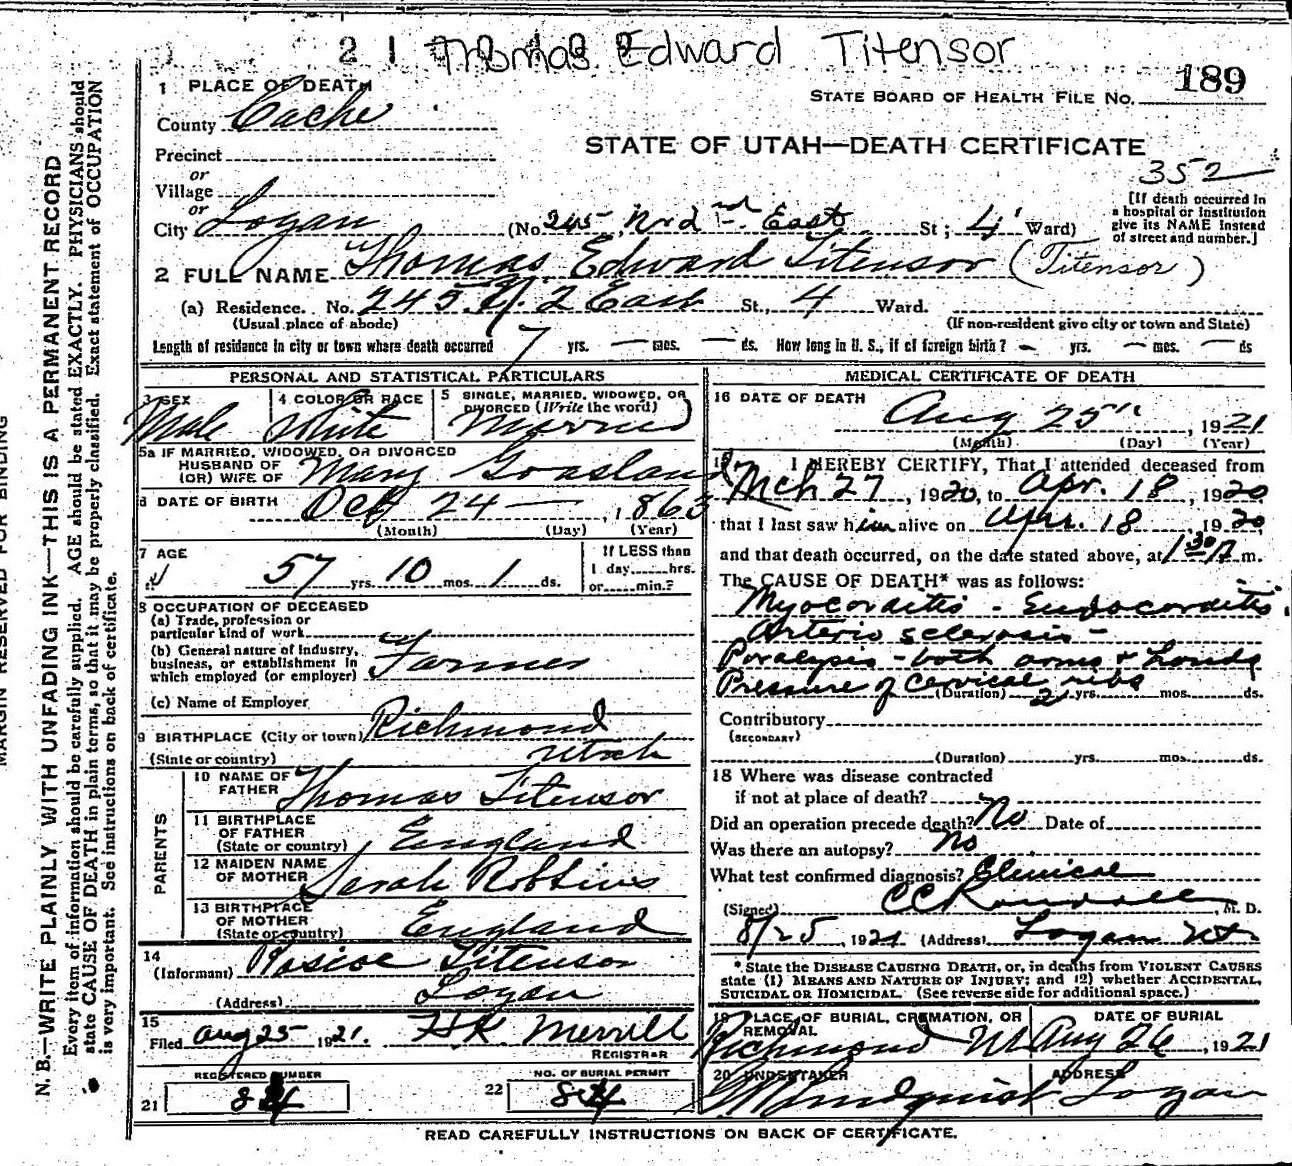 2 1 Thomas Edward Titensor
189
STATE BOARD OF HEALTH FILE NO.
1 PLACE OF DEATH
County Cache
STATE OF UTAH—DEATH CERTIFICATE
352
Precinct
or
Village
or
City Logan (No. 245 N. 2nd East St; 4 Ward)
[If death occurred in
a hospital or institution
give its NAME instead
of street and number.]
2 FULL NAME Thomas Edward Titensor (Titensor)
(a) Residence. No. 245 N. 2 East St., 4 Ward.
(Usual place of abode) (If non-resident give city or town and State)
Length of residence in city or town where death occurred 7 yrs. — mos. — ds. How long in U. S., if of foreign birth? — yrs. — mos. — ds
PERSONAL AND STATISTICAL PARTICULARS
3 SEX
Male
4 COLOR OR RACE
White
5 SINGLE, MARRIED, WIDOWED, OR
DIVORCED (Write the word)
Married
5a IF MARRIED, WIDOWED, OR DIVORCED
HUSBAND OF
(OR) WIFE OF Mary Goasland
6 DATE OF BIRTH Oct 24 — , 1863
(Month) (Day) (Year)
7 AGE
57 yrs. 10 mos. 1 ds.
If LESS than
1 day......hrs.
or......min.?
8 OCCUPATION OF DECEASED
(a) Trade, profession or
particular kind of work
(b) General nature of industry,
business, or establishment in
which employed (or employer) Farmer
(c) Name of Employer
9 BIRTHPLACE (City or town) Richmond
(State or country) Utah
PARENTS
10 NAME OF
FATHER Thomas Titensor
11 BIRTHPLACE
OF FATHER
(State or country) England
12 MAIDEN NAME
OF MOTHER Sarah Robbins
13 BIRTHPLACE
OF MOTHER
(State or country) England
14
(Informant) Roscoe Titensor
(Address) Logan
15
Filed Aug 25 1921. H. K. Merrill
REGISTRAR
REGISTERED NUMBER
21 84
NO. OF BURIAL PERMIT
22 84
MEDICAL CERTIFICATE OF DEATH
16 DATE OF DEATH
Aug 25th, 1921
(Month) (Day) (Year)
I HEREBY CERTIFY, That I attended deceased from
Mch 27, 1920, to Apr. 18, 1920
that I last saw him alive on Apr. 18, 1920,
and that death occurred, on the date stated above, at 1 30 P m.
The CAUSE OF DEATH* was as follows:
Myocorditis - Endocorditis.
Arterio sclerosis -
Paralysis - both arms & hands
Pressure of cervical ribs
(Duration) 2 yrs. mos. ds.
Contributory
(SECONDARY)
(Duration) yrs. mos. ds.
18 Where was disease contracted
if not at place of death?
Did an operation precede death? No Date of
Was there an autopsy? No
What test confirmed diagnosis? Clinical
(Signed) CC Randall, M. D.
8/25, 1921 (Address) Logan Ut
* State the DISEASE CAUSING DEATH, or, in deaths from VIOLENT CAUSES
state (1) MEANS AND NATURE OF INJURY; and (2) whether ACCIDENTAL,
SUICIDAL OR HOMICIDAL. (See reverse side for additional space.)
19 PLACE OF BURIAL, CREMATION, OR
REMOVAL
Richmond Ut
DATE OF BURIAL
Aug 26, 1921
20 UNDERTAKER
Lindquist
ADDRESS
Logan
READ CAREFULLY INSTRUCTIONS ON BACK OF CERTIFICATE.
MARGIN RESERVED FOR BINDING
N. B.—WRITE PLAINLY WITH UNFADING INK—THIS IS A PERMANENT RECORD
Every item of information should be carefully supplied. AGE should be stated EXACTLY. PHYSICIANS should
state CAUSE OF DEATH in plain terms, so that it may be properly classified. Exact statement of OCCUPATION
is very important. See instructions on back of certificate.